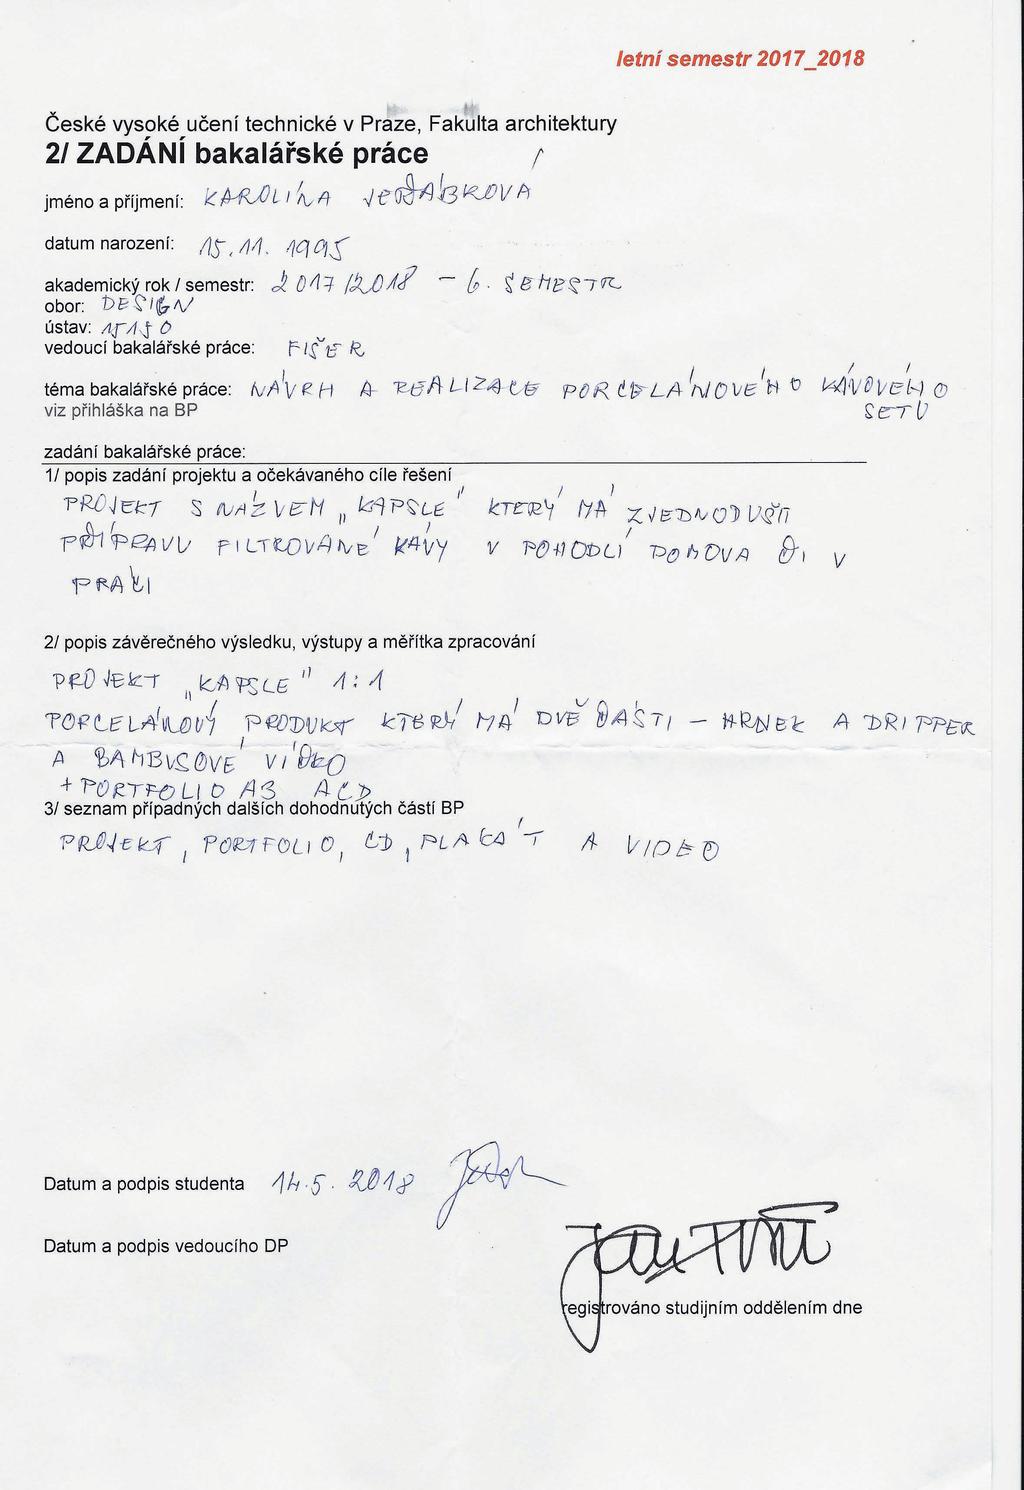 letní semestr 2017_2018
České vysoké učení technické v Praze, Fakulta architektury
2/ ZADÁNÍ bakalářské práce
jméno a příjmení: KAROLÍNA JEŘÁBKOVÁ
datum narození: 15.11. 1995
akademický rok / semestr: 2017/2018 – 6. SEMESTR
obor: DESIGN
ústav: 15150
vedoucí bakalářské práce: FIŠER
téma bakalářské práce: NÁVRH A REALIZACE PORCELÁNOVÉHO KÁVOVÉHO
viz přihláška na BP SETU
zadání bakalářské práce:
1/ popis zadání projektu a očekávaného cíle řešení
PROJEKT S NÁZVEM „KAPSLE" KTERÝ MÁ ZJEDNODUŠIT
PŘÍPRAVU FILTROVANÉ KÁVY V POHODLÍ DOMOVA ČI V
PRÁCI
2/ popis závěrečného výsledku, výstupy a měřítka zpracování
PROJEKT „KAPSLE" 1:1
PORCELÁNOVÝ PRODUKT KTERÝ MÁ DVĚ ČÁSTI – HRNEK A DRIPPER
A BAMBUSOVÉ VÍČKO
+ PORTFOLIO A3 A CD
3/ seznam případných dalších dohodnutých částí BP
PROJEKT, PORTFOLIO, CD, PLAKÁT A VIDEO
Datum a podpis studenta 14.5. 2018
Datum a podpis vedoucího DP
registrováno studijním oddělením dne